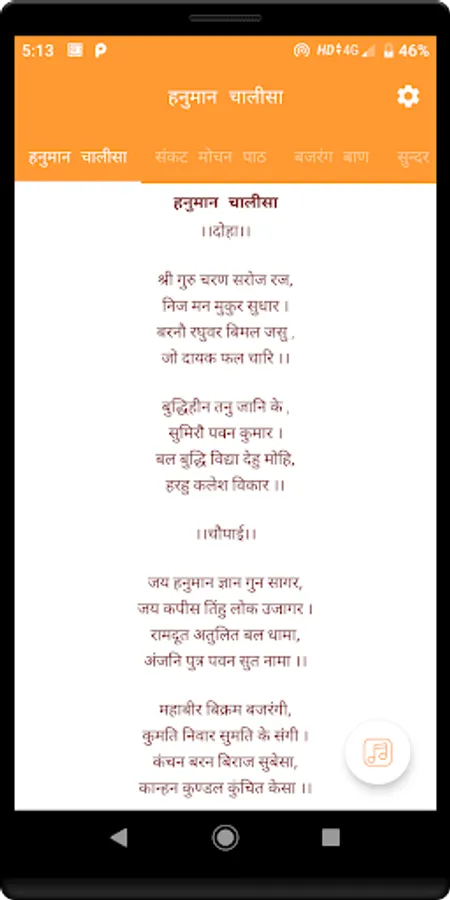 5:13 HD 4G 46%
हनुमान चालीसा
हनुमान चालीसा संकट मोचन पाठ बजरंग बाण सुन्दर
हनुमान चालीसा
।।दोहा।।
श्री गुरु चरण सरोज रज,
निज मन मुकुर सुधार ।
बरनौ रघुवर बिमल जसु ,
जो दायक फल चारि ।।
बुद्धिहीन तनु जानि के ,
सुमिरौ पवन कुमार ।
बल बुद्धि विद्या देहु मोहि,
हरहु कलेश विकार ।।
।।चौपाई।।
जय हनुमान ज्ञान गुन सागर,
जय कपीस तिंहु लोक उजागर ।
रामदूत अतुलित बल धामा,
अंजनि पुत्र पवन सुत नामा ।।
महाबीर बिक्रम बजरंगी,
कुमति निवार सुमति के संगी ।
कंचन बरन बिराज सुबेसा,
कान्हन कुण्डल कुंचित केसा ।।